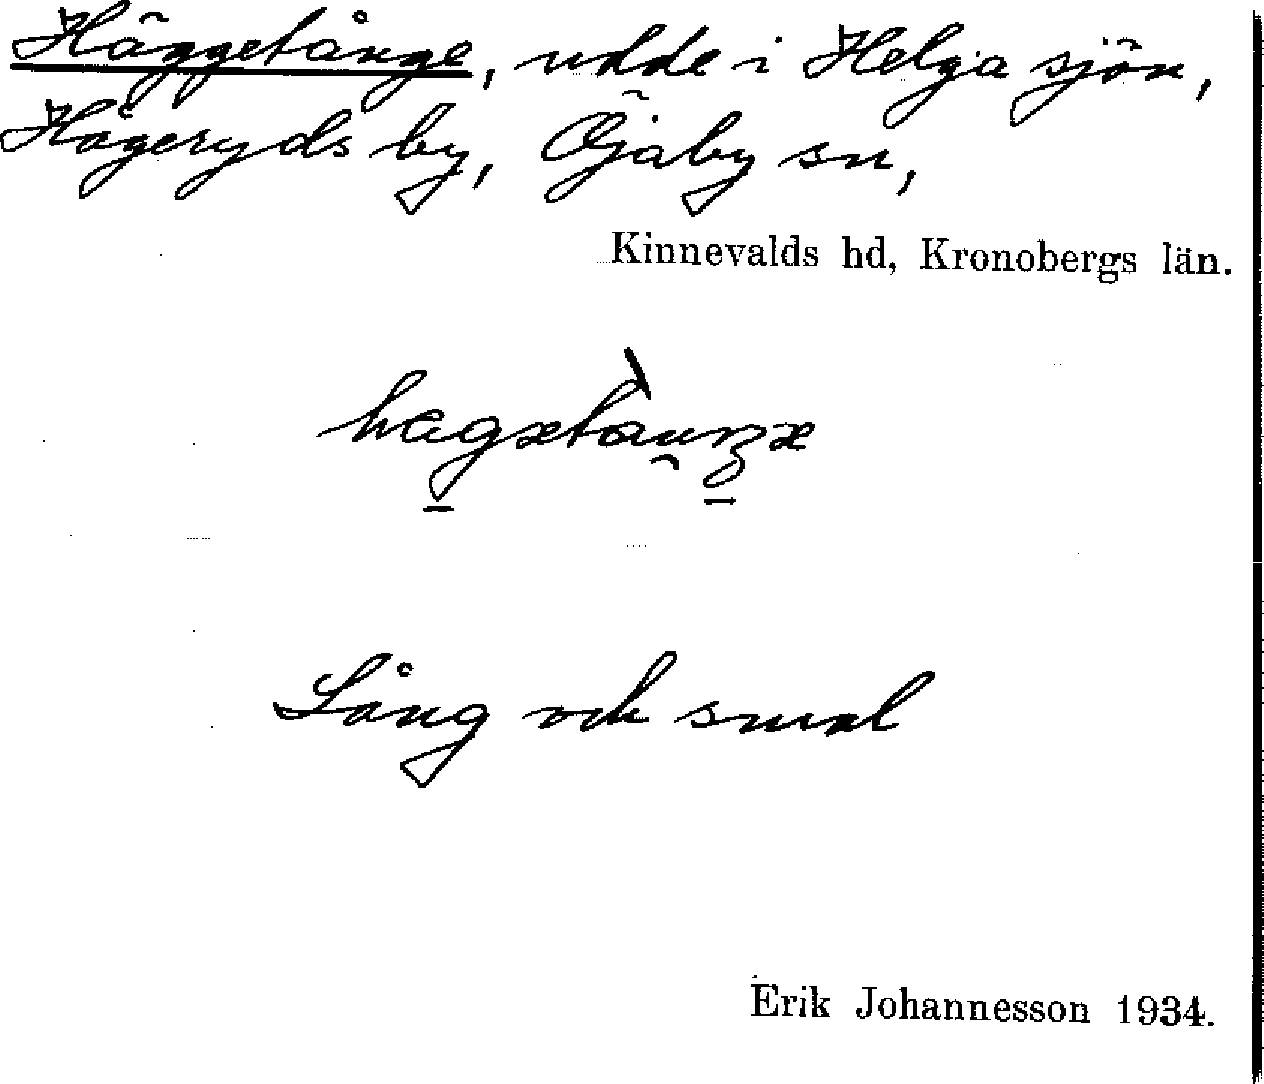 Häggetånge, udde i Helgasjön,
Hågeryds by, Öjaby sn,
Kinnevalds hd, Kronobergs län.
Lång och smal
Erik Johannesson 1934.